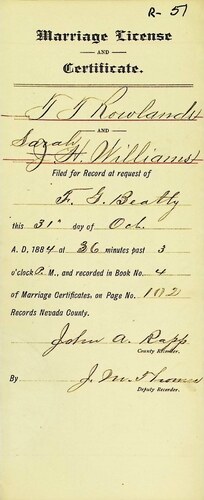 R-51
Marriage License
AND
Certificate.
T T Rowlands
AND
Sarah
J H Williams
Filed for Record at request of
F. G. Beatty
this 31st day of Oct.
A. D. 1884 at 36 minutes past 3
o'clock P. M., and recorded in Book No. 4
of Marriage Certificates, on Page No. 102
Records Nevada County.
John A. Rapp
County Recorder.
By J. M. Thomas
Deputy Recorder.